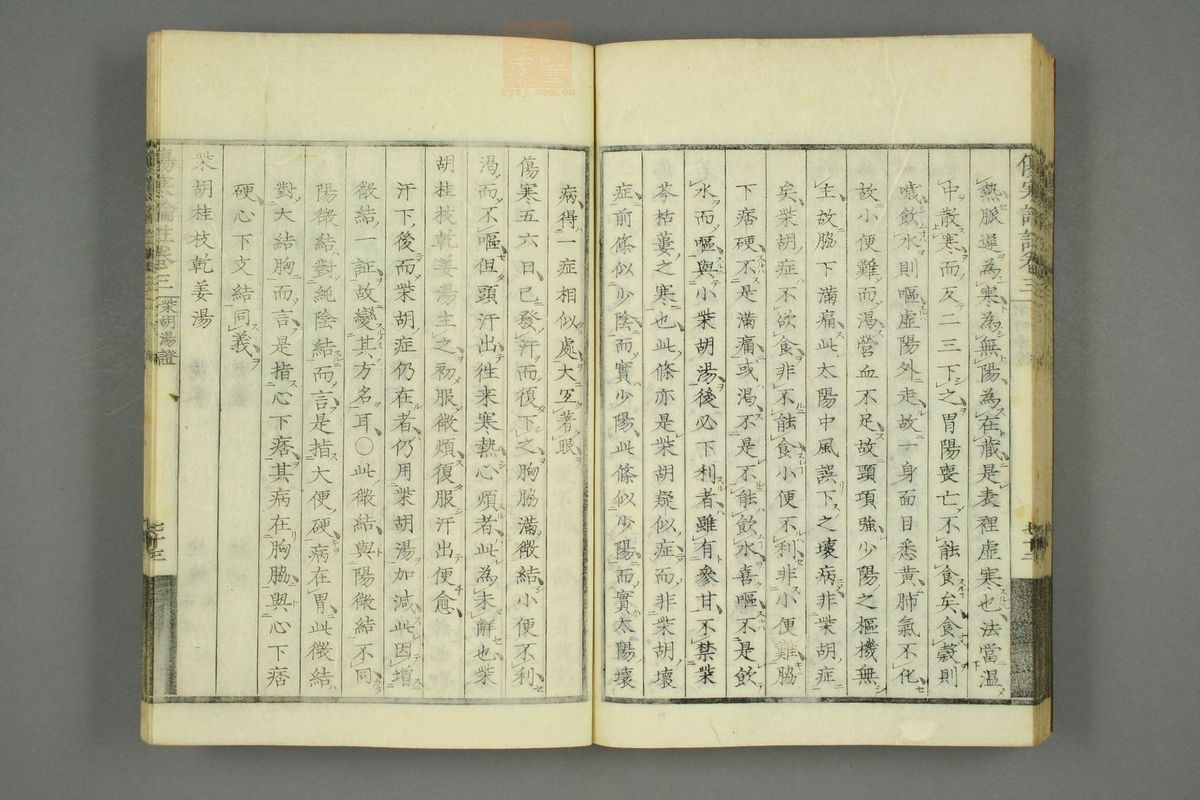 熱脈遲為寒為無陽為在藏是表裡虛寒也法當溫
中散寒而反二三下之胃陽喪亡不能食矣食穀則
噦飲水則嘔虛陽外走故一身面目悉黃肺氣不化
故小便難而渴營血不足故頸項強少陽之樞機無
主故脇下滿痛此太陽中風誤下之壞病非柴胡症
矣柴胡症不欲食非不能食小便不利非小便難脇
下痞硬不是滿痛或渴不是不能飲水喜嘔不是飲
水而嘔與小柴胡湯後必下利者雖有參甘不禁柴
芩栝蔞之寒也此條亦是柴胡疑似症而非柴胡壞
症前條似少陰而實少陽此條似少陽而實太陽壞
病得一症相似處大宜著眼
傷寒五六日已發汗而復下之胸脇滿微結小便不利
渴而不嘔但頭汗出徃来寒熱心煩者此為未解也柴
胡桂枝乾姜湯主之初服微煩復服汗出便愈
汗下後而柴胡症仍在者仍用柴胡湯加減此因增
微結一証故變其方名耳○此微結與陽微結不同
陽微結對純陰結而言是指大便硬病在胃此微結
對大結胸而言是指心下痞其病在胸脇與心下痞
硬心下支結同義
柴胡桂枝乾姜湯
傷寒論註卷三
柴胡湯證
七十三
zysj.com.cn